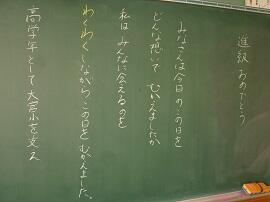 進級おめでとう
みなさんは今日のこの日を
どんな想いでむかえましたか
私はみんなに会えるのを
わくわくしながらこの日をむかえました。
高学年として大宮小を支え